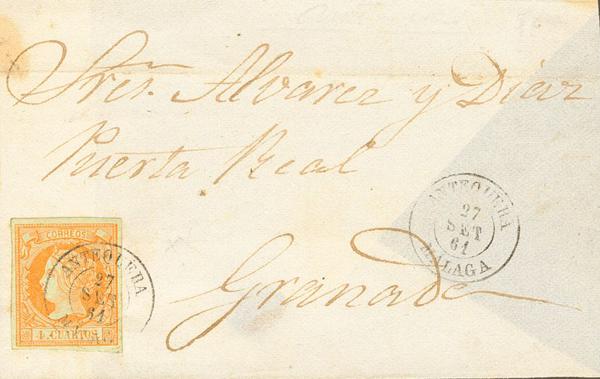 Sres. Alvarez y Diaz
Puerta Real
Granada
ANTEQUERA
27
SET
61
MALAGA
CORREOS
ANTEQUERA
27
SET
61
4 CUARTOS